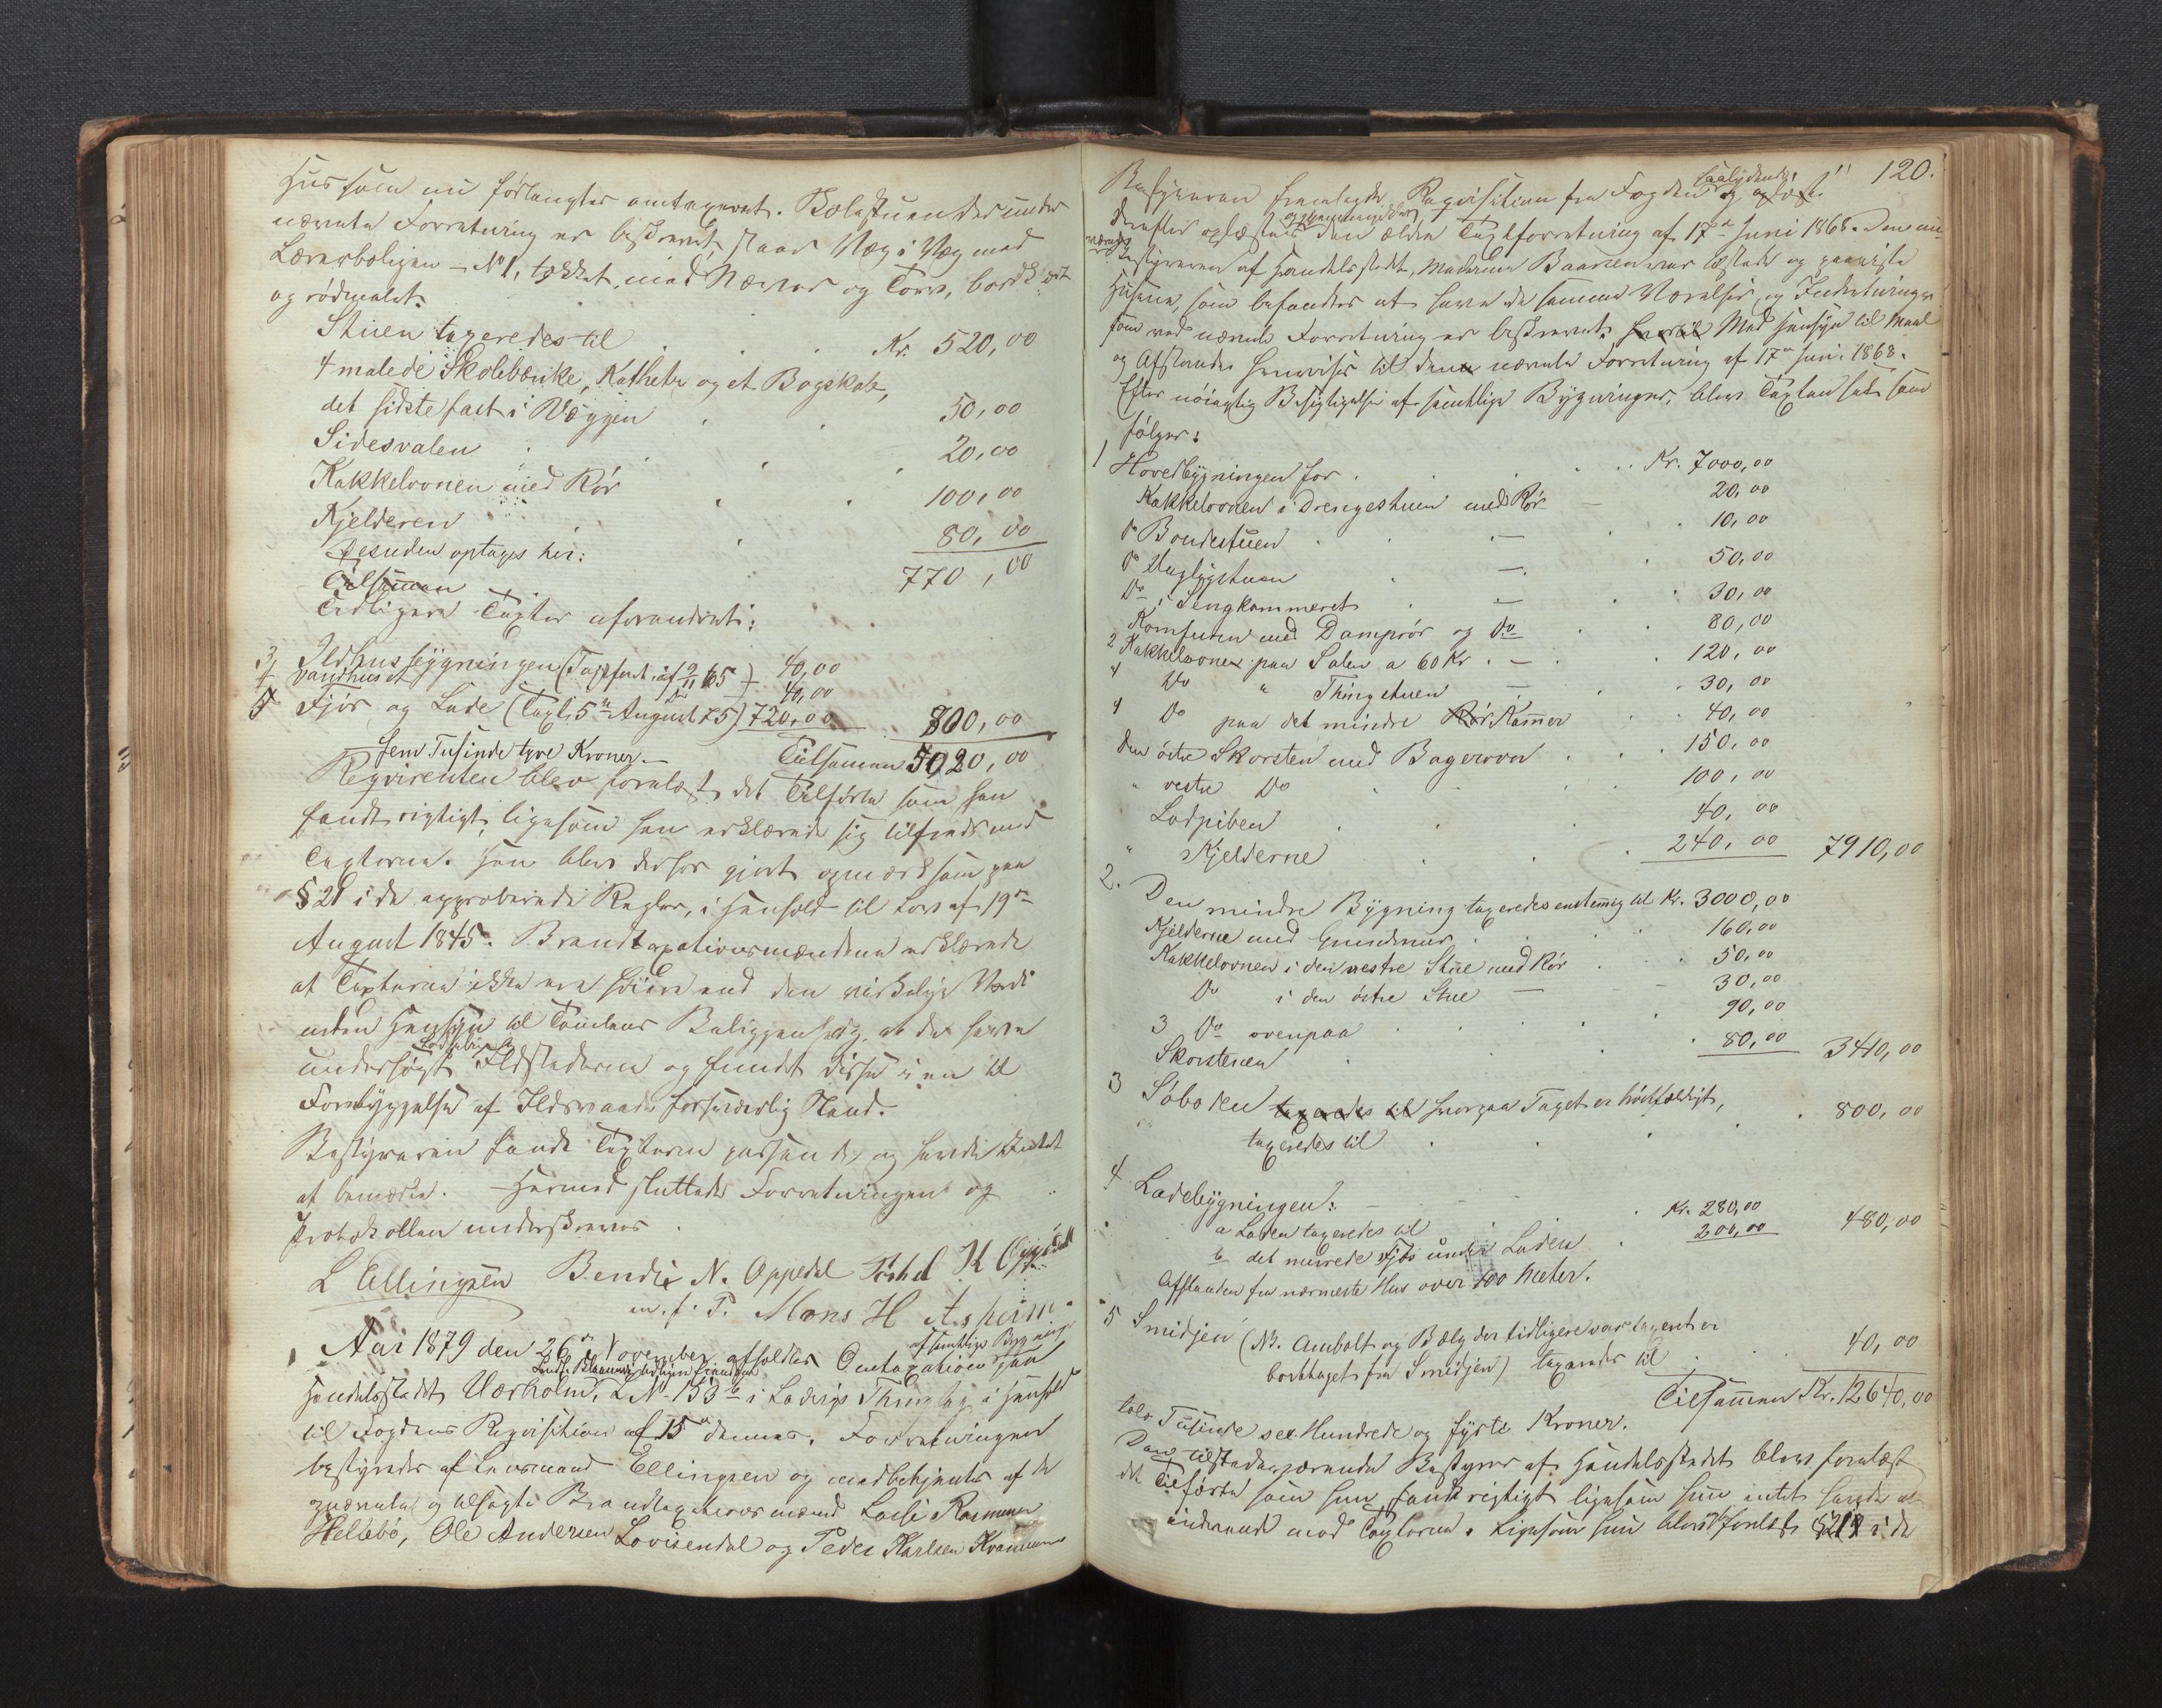 Hus som nu forlangtes omtaxeret. Skolestuen der under
nævnte Forretning er beskrevet staar Væg i Væg med
Lærerboligen – No 1, tækket med Næver og Torv, bordklædt
og rødmalet.
Stuen taxeredes til Kr. 520,00
4 malede Skolebænke, Kathete og et Bogskab,
det sidste fast i Væggen 50,00
Sidesvalen 20,00
Kakkelovnen med Rør 100,00
Kjelderen 80,00
Desuden optages her: 770,00
Tilsammen
Tidligere Taxter uforandret:
3 Ildhusbygningen (Taxtforr. af 9/11 65) 40,00
4 Vandhuset 40,00
5 Fjøs og Lade (Taxt 5te August 75) 720,00 800,00
fem Tusinde tyve Kroner. – Tilsammen 5020,00
Reqvirenten blev forelæst det Tilførte som han
fandt rigtigt, ligesom han erklærede sig tilfreds med
Taxterne. Han blev derhos gjort opmærksom paa
§ 21 i de approberede Regler, i Henhold til Lov af 19de
August 1845. Brandtaxationsmændene erklærede
at Taxterne ikke ere høiere end den virkelige Værdi
uden Hensyn til Tomtens Beliggenhed, at de have
undersøgt Ildstederne og fundet disse i en til
Forebyggelse af Ildsvaade forsvarlig Stand.
Bestyreren fandt Taxterne passende og havde Intet
at bemærke. – Hermed sluttedes Forretningen og
Protokollen underskreves.
L Ellingsen Bendix N. Oppedal K Oppedal
m. f. P. Mons H Asheim
Aar 1879 den 26de November afholdtes Omtaxation paa
af samtlige Bygninger
Handelsstedet Værholm, L No 153 b i Ladvigs Thinglag i Henhold
til Fogdens Reqvisition af 15de dennes. Forretningen
bestyredes af Lensmand Ellingsen og medbetjentes af de
opnævnte og tilsagte Brandtaxationsmænd Losse Rasmussen
Hellebø, Ole Andersen Lovisendal og Peder Karlsen Kvammen
120.
Bestyreren fremlagde Reqvisition fra Fogden saalydende
derefter oplæstes og gjennemgikkes den ældre Taxtforretning af 17de Juni 1868. Den nu-
værende Bestyrerer af Handelsstedet, Madame Baarsen var tilstede og paaviste
Husene, som befandtes at have de samme Værelser og Indretninger
som ved nævnte Forretning er beskrevet. Med Hensyn til Maal
og Afstande henvises til den nævnte Forretning af 17de Juni 1868.
Efter nøiagtig Besigtigelse af samtlige Bygninger, blev Taxten sat som
følger:
1 Hovedbygningen for Kr. 7000,00
Kakkelovnen i Drengestuen med Rør 20,00
Do Bondestuen – 10,00
Do Dagligstuen – 50,00
Do i Sengkammeret – 30,00
Komfuren med Damprør og Do 80,00
2 Kakkelovne paa Salen a 60 Kr. – 120,00
1 Do " Thingstuen – 30,00
1 Do paa det mindre Kammer 40,00
Den østre Skorsten med Bagerovn 150,00
" vestre Do 100,00
Lodpiben 40,00
" Kjelderne 240,00 7910,00
2. Den mindre Bygning taxeredes enstemmig til Kr. 3000,00
Kjelderne med Grundmur 160,00
Kakkelovnen i den vestre Stue med Rør 50,00
Do i den østre Stue – 30,00
3 Do ovenpaa 90,00
Skorstenen 80,00 3410,00
3 Søboden taxeredes til hvorpaa Taget er brøstfældigt,
taxeredes til 800,00
4 Ladebygningen:
a Laden taxeredes til Kr. 280,00
b det murede Fjøs under Laden 200,00 480,00
Afstanden fra nærmeste Hus over 100 Meter.
5 Smidjen (NB. Ambolt og Bælg der tidligere var taxeret er
borttaget fra Smidjen) taxeredes til 40,00
Tilsammen Kr. 12640,00
tolv Tusinde sex Hundrede og fyrti Kroner.
Den tilstedeværende Bestyrer af Handelsstedet blev forelæst
det Tilførte som hun fandt rigtigt ligesom hun intet havde at
indvende mod Taxterne. Ligesom hun blev forelæst § 21 i de